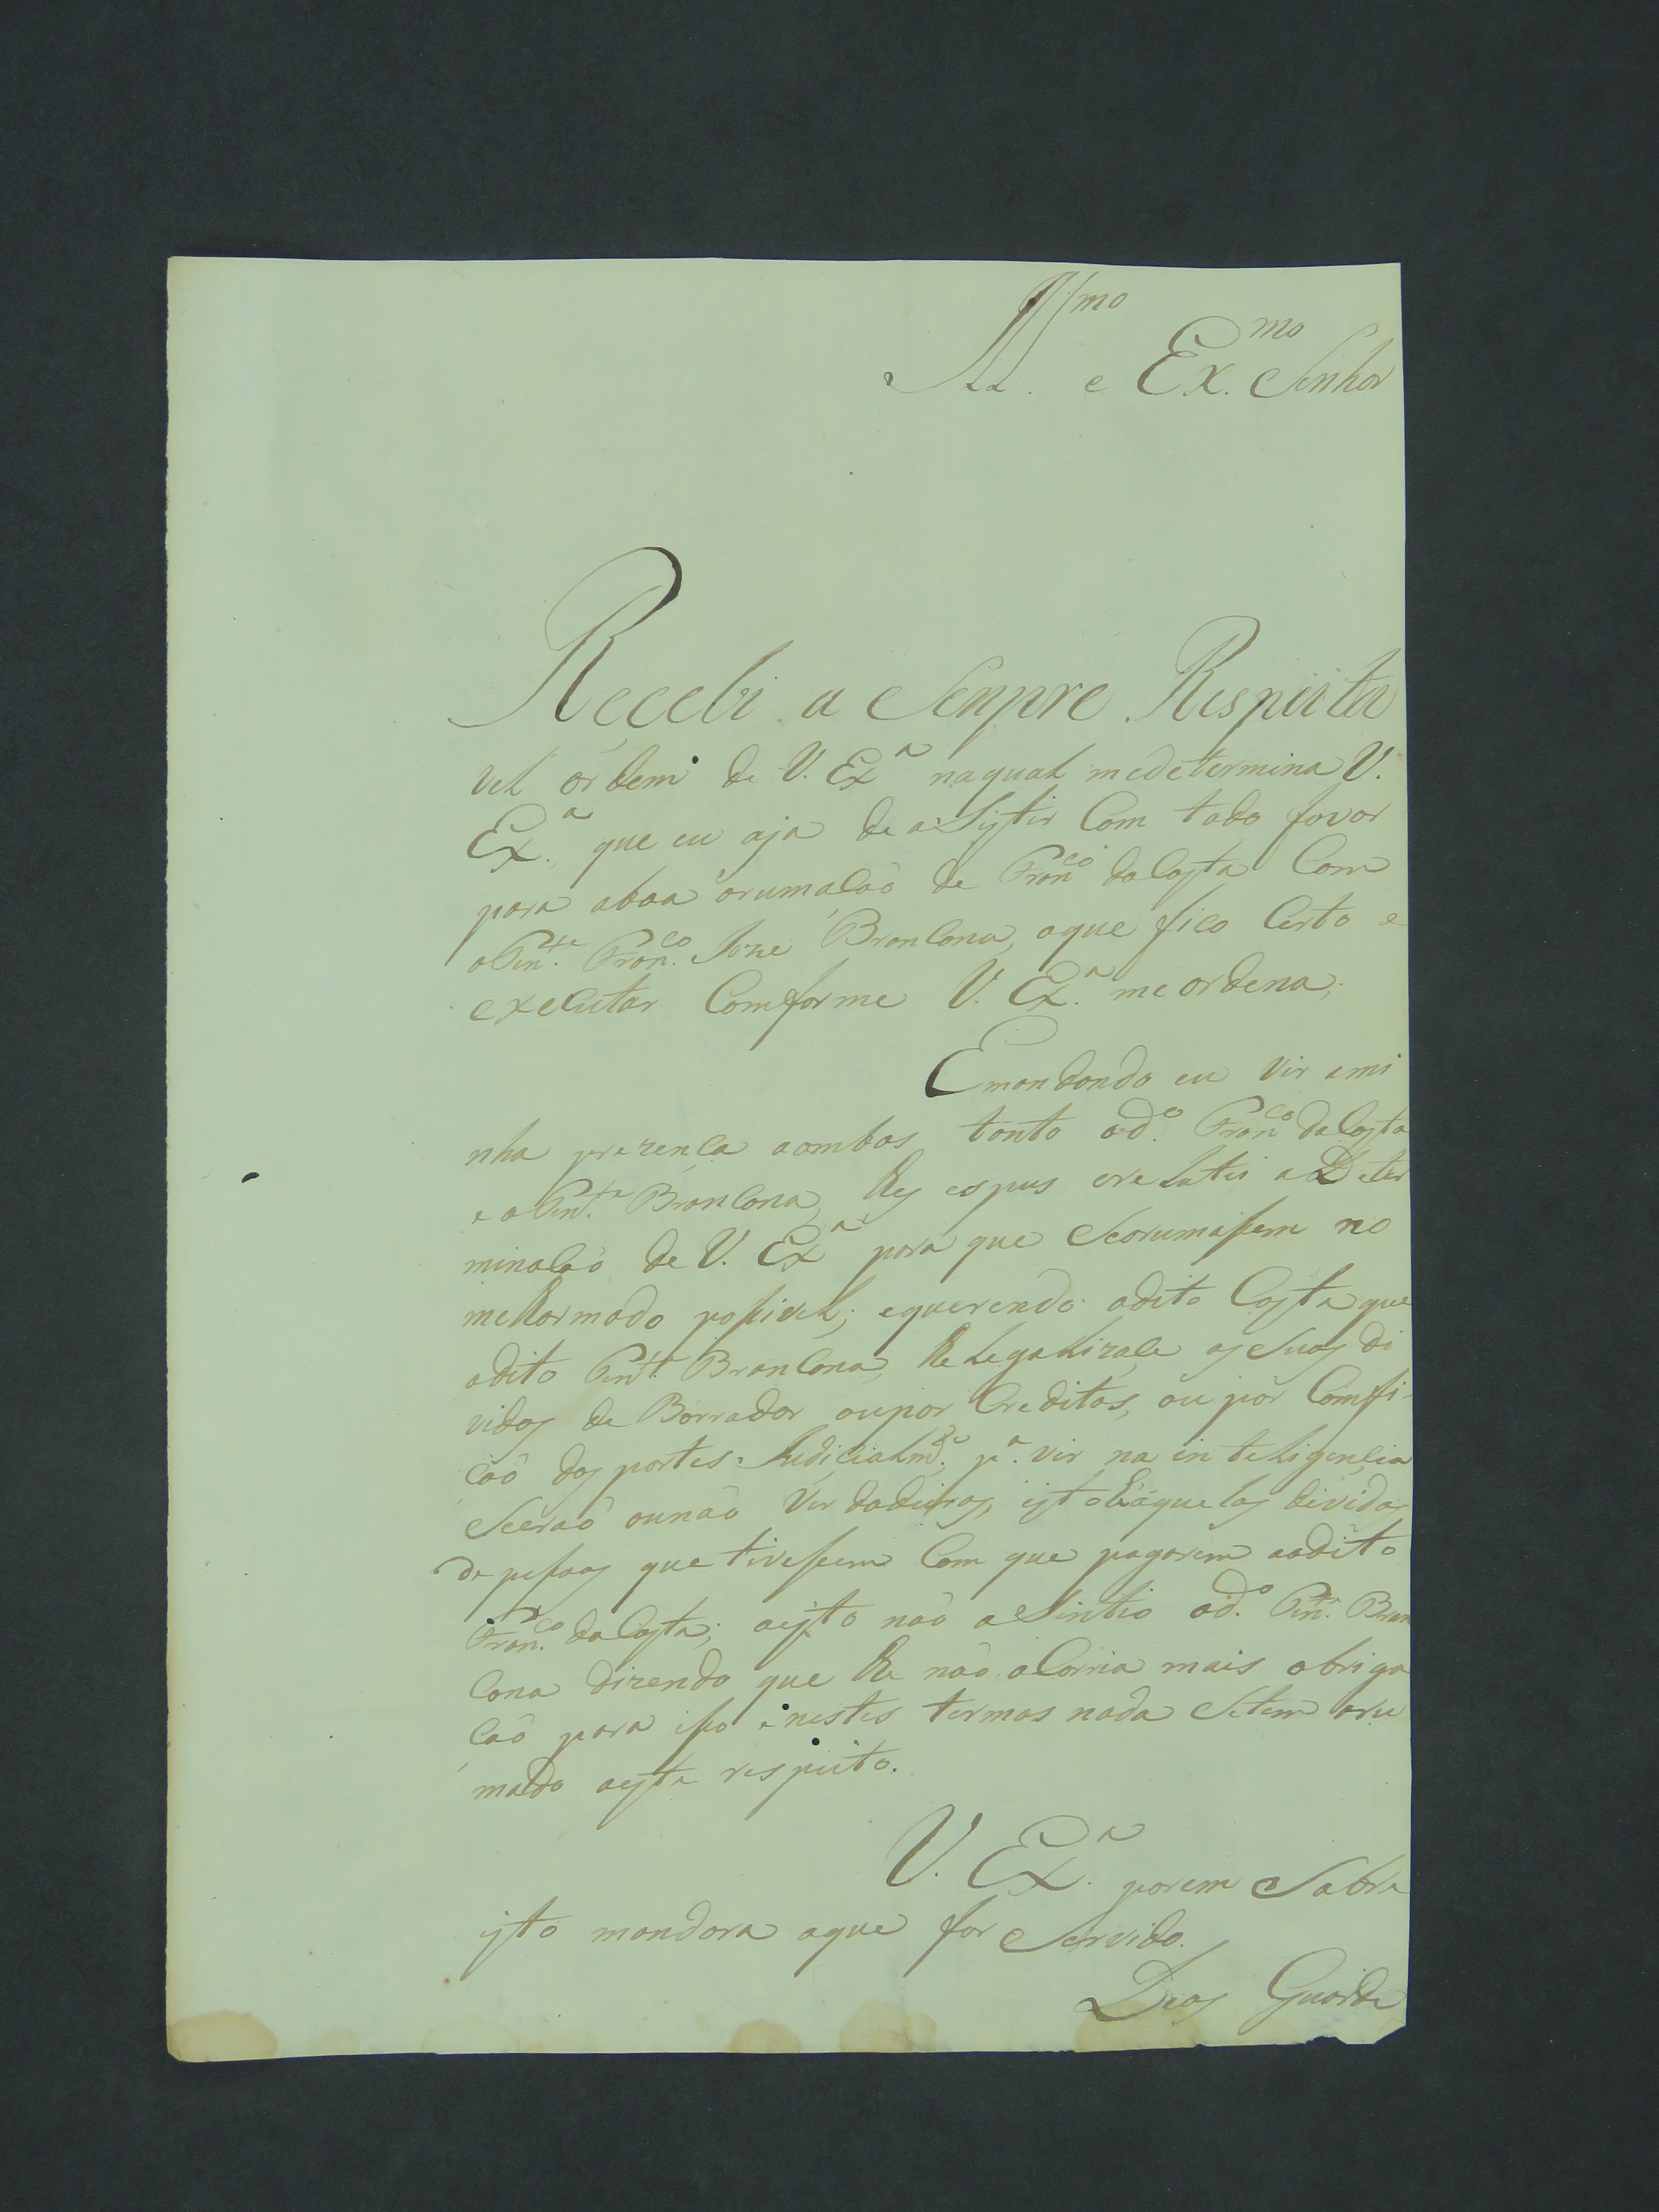 Ill.mo e Ex.mo Senhor
Recebi a Senpre Respeita
vel ordem de V. Exa naqual medetermina V.
Ex.a que eu aja de asistir Com todo favor
para aboa arumaçaõ de Franco daCosta Com
oTen.te Fran.co Joze Broncona, aque fico Certo e
executar Comforme V. Ex.a me ordena;
Emandando eu vir ami
nha prezença aambos, tanto od.o Franco daCosta
e oTen.te Broncona, lhes espus erelatei aDeter
minaçaõ de V. Exa para que Searumasem no
melhormodo posivel; equerendo odito Costa que
odito Tente Broncona, lhe legalizace as Suas di
vidas de Borrador oupor Creditos, ou por Comfi-
çaõ das partes Judicialm.te p.a vir na inteligencia
Seeraõ ounaõ Verdadeiras, isto hé aquelas dividas
de pesoas que tivesem Com que pagarem aodito
Fran.co daCosta; aisto naõ aSintio od.o Ten.te Bron
cona dizendo que lhe naõ aCorria mais obriga
çaõ para iso enestes termos nada Setem aru
mado aeste respeito.
V. Ex.a porem Sobre
isto mandara aque for Servido.
Deos Guarde